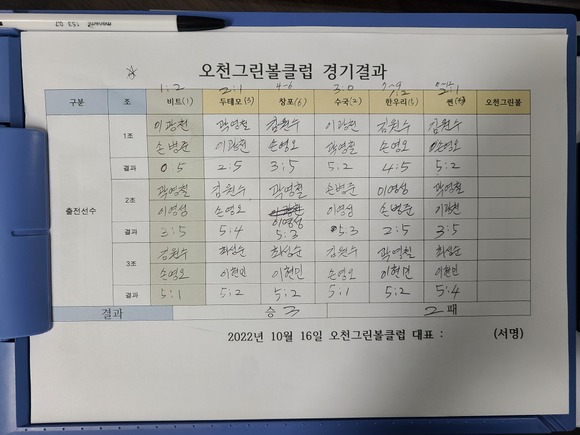 오천그린볼클럽 경기결과
1:2 2:1 4-6 3:0 2:1
구분 조 비트(1) 두테모(3) 창포(6) 수국(2) 한우리(5) 썬(4) 오천그린볼
출전선수
1조 이광천 곽영철 김원수 이광천 김원수 김원수
손병준 이광천 손영오 곽영철 손영오 손영오
결과 0:5 2:5 3:5 5:2 4:5 5:2
2조 곽영철 김원수 곽영철 손병준 이영성 곽영철
이영성 손영오 이영성 이영성 손병준 이광천
결과 3:5 5:4 5:3 5:3 2:5 3:5
3조 김원수 최삼순 최삼순 김원수 곽영철 최삼순
손영오 이현민 이현민 손영오 이현민 이현민
결과 5:1 5:2 5:2 5:1 5:2 5:4
결과 승 3 2 패
2022년 10월 16일 오천그린볼클럽 대표 : (서명)